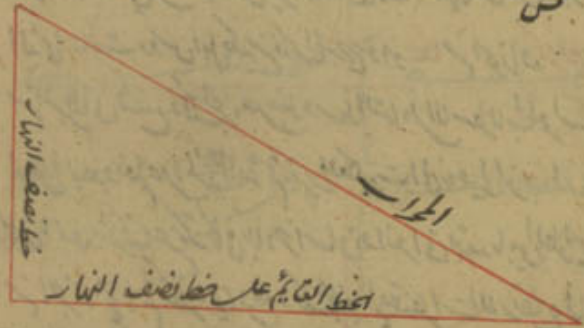 خط نصف النهار
المحراب
الخط القايم على خط نصف النهار